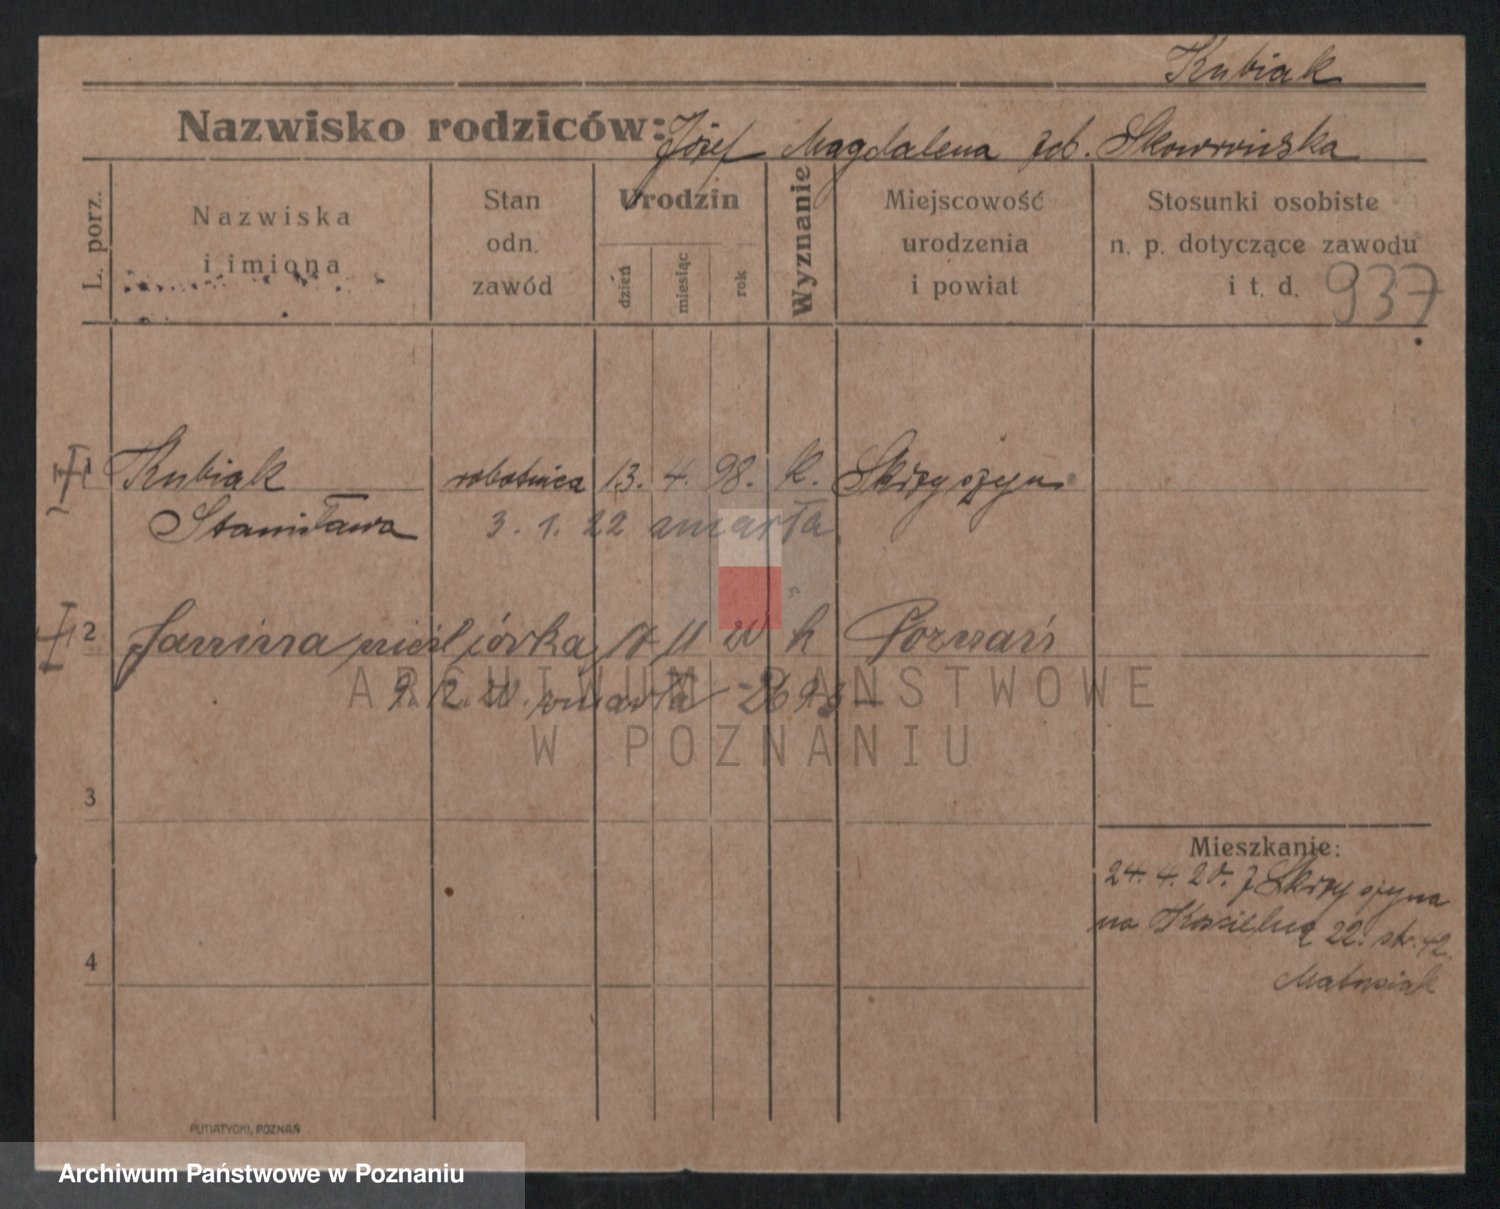 Kubiak
Nazwisko rodziców: Józef Magdalena Skowrońska
L. porz.
Nazwiska
i imiona
Stan
odn.
zawód
Urodzin
dzień
miesiąc
rok
Wyznanie
Miejscowość
urodzenia
i powiat
Stosunki osobiste
n. p. dotyczące zawodu
i t. d. 937
1 Kubiak robotnica 13. 4. 98. k.
Stanisława 3. 1. 22 zmarła
2 Janina nieśl córka 17 11 20 k Poznań
zmarła
ARCHIWUM PAŃSTWOWE
W POZNANIU
3
Mieszkanie:
24. 4. 20.
na 22. str. 42.
4
Matusiak
PUTIATYCKI, POZNAŃ
Archiwum Państwowe w Poznaniu